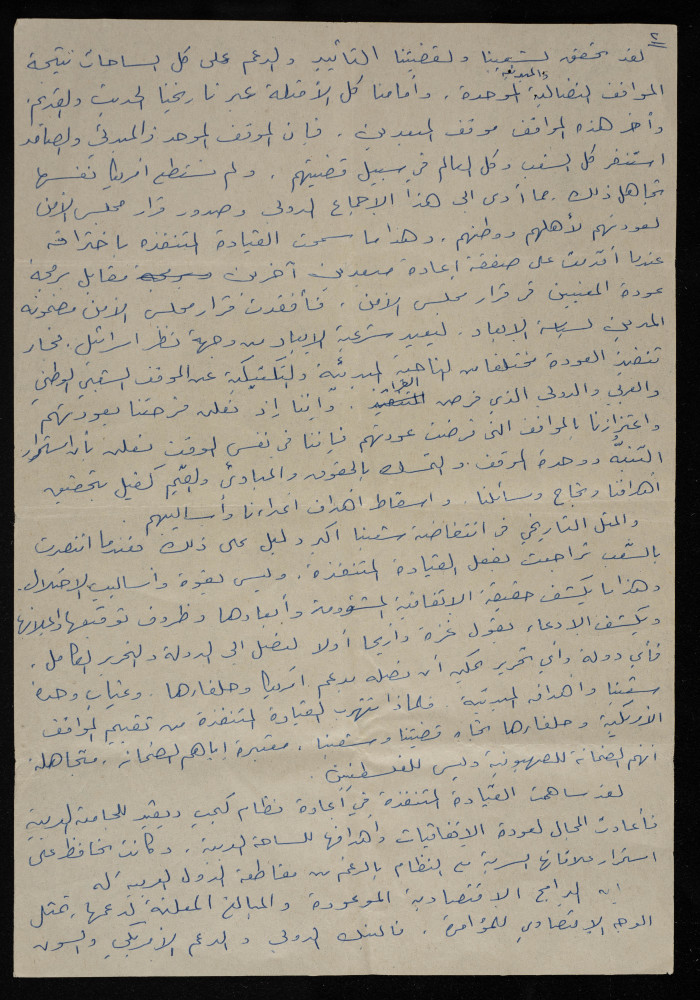 ٢
لقد تحقق لشعبنا ولقضيتنا التأييد والدعم على كل الساحات نتيجة
والمبدئية
المواقف النضالية الموحدة، وأمامنا كل الأمثلة عبر تاريخنا الحديث والقديم.
وآخر هذه المواقف موقف المبعدين. فإن الموقف الموحد والمبدئي والصامد
استنفر كل الشعب وكل العالم في سبيل قضيتهم. ولم تستطع امريكا نفسها
تجاهل ذلك. مما أدى الى هذا الاجماع الدولي وصدور قرار مجلس الأمن
لعودتهم لأهلهم ووطنهم. وهذا ما سمحت القيادة المتنفذة باختراقه
عندما أقدمت على صفقة إعادة مبعدين آخرين مقابل برمجة
عودة المعنيين في قرار مجلس الأمن. فأفقدت قرار مجلس الأمن مضمونه
المدين لسياسة الابعاد. ليعيد شرعية الإبعاد من وجهة نظر اسرائيل. فجاء
تنفيذ العودة مختلفا من الناحية المبدئية والتكتيكية عن الموقف الشعبي الوطني
القرار
والعربي والدولي الذي فرض التنفيذ. وإننا إذ نعلن فرحتنا بعودتهم
واعتزازنا بالمواقف التي فرضت عودتهم فإننا في نفس الوقت نعلن بأن استمرار
ووحدة الموقف والتمسك بالحقوق والمبادئ والقيم كفيل بتحقيق
أهدافنا ونجاح وسائلنا. واسقاط اهداف اعداءنا وأساليبهم
والمثل التاريخي في انتفاضة شعبنا اكبر دليل على ذلك فعندما انتصرت
بالشعب تراجعت بفعل القيادة المتنفذة. وليس بقوة وأساليب الاحتلال.
وهذا ما يكشف حقيقة الاتفاقية المشؤومة وأبعادها وظروف توقيعها واعلانها
ويكشف الادعاء بقول غزة واريحا أولا لنصل الى الدولة والتحرير الكامل.
فأي دولة وأي تحرير يمكن أن نصله بدعم امريكا وحلفاءها. وغياب وحدة
شعبنا وأهدافه المبدئية. فلماذا تتهرب القيادة المتنفذة من تقييم المواقف
الأمريكية وحلفاءها تجاه قضيتنا وشعبنا. معتبرة إياهم الضمانة. متجاهلة
انهم الضمانة للصهيونية وليس للفلسطينيين.
لقد ساهمت القيادة المتنفذة في إعادة نظام كامب ديفيد للجامعة العربية
فأعادت المجال لعودة الاتفاقيات وأهدافها للساحة العربية. وكانت تحافظ على
استمرار علاقاتها السرية مع النظام بالرغم من مقاطعة الدول العربية له
ان البرامج الاقتصادية الموعودة والمبالغ المعلنة لدعمها. تمثل
الوجه الاقتصادي للمؤامرة. فالبنك الدولي والدعم الأمريكي والسوق